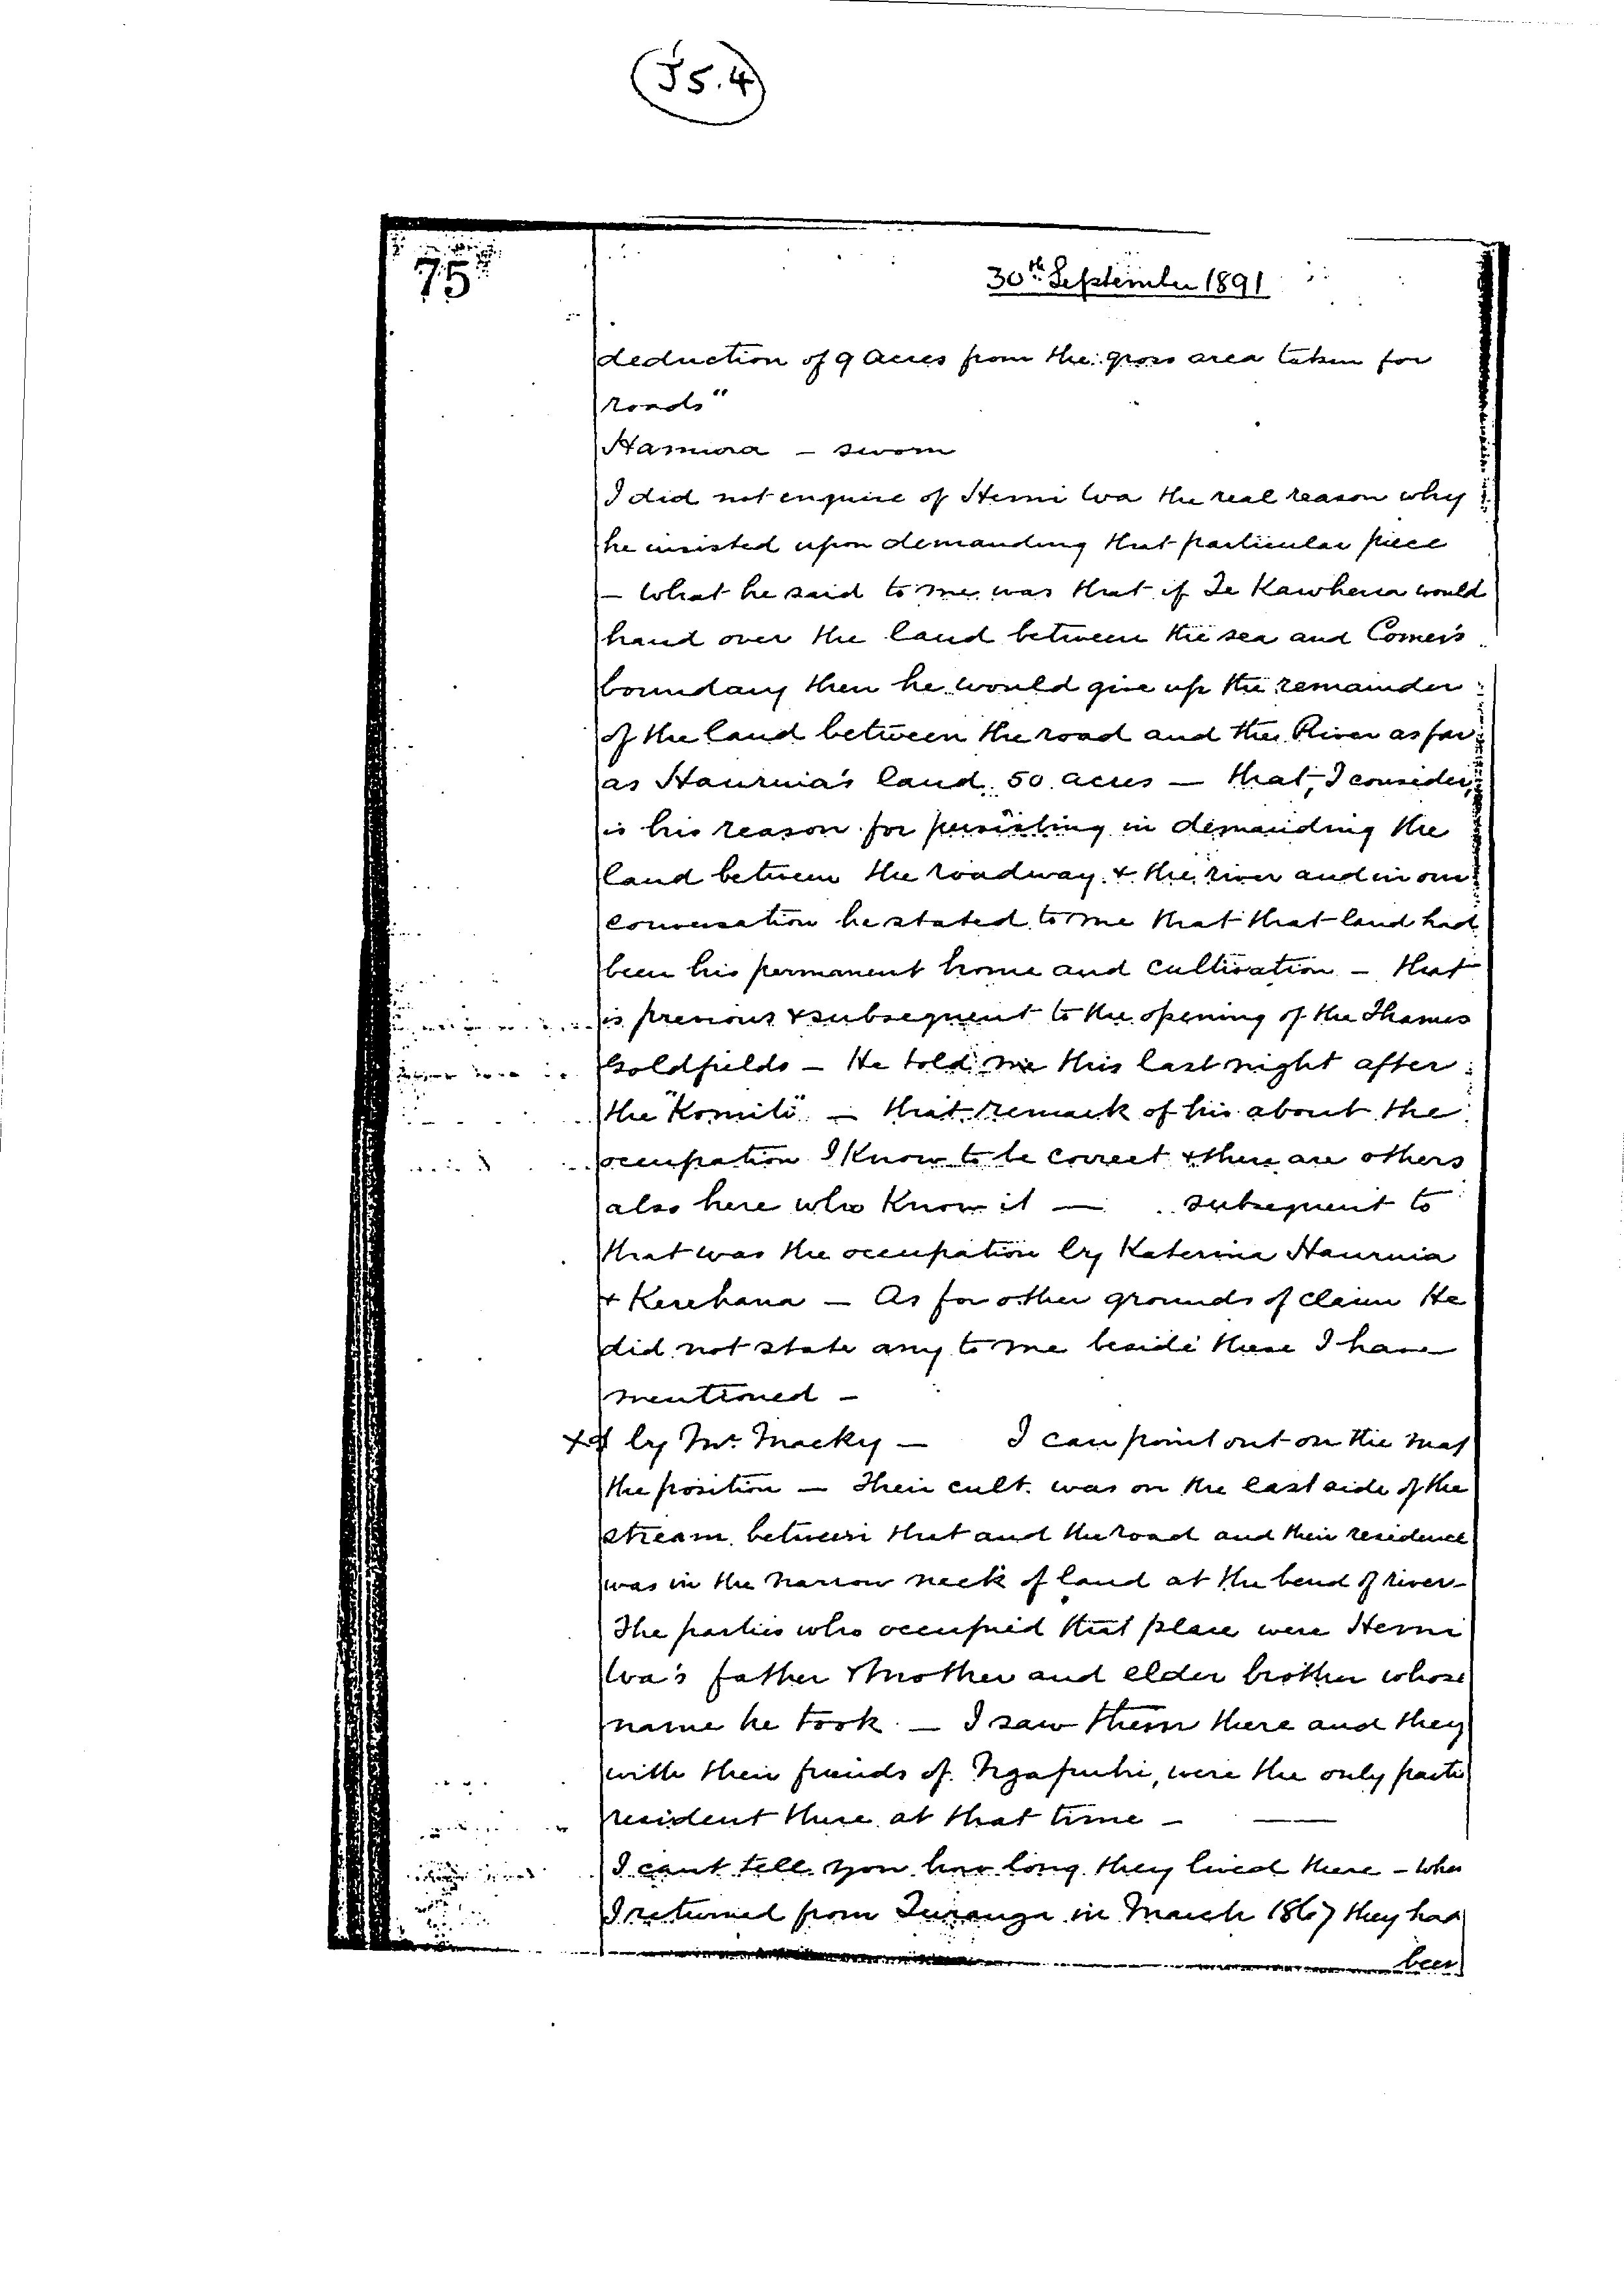 J5.4
75
30th September 1891
deduction of 9 Acres from the gross area taken for
roads"
Hamiora - sworn
I did not enquire of Hemi Iva the real reason why
he insisted upon demanding that particular piece
- What he said to me was that if Te Kawhena would
hand over the land between the sea and Comer's
boundary then he would give up the remainder
of the land between the road and the River as far
as Haurua's land 50 acres - that, I consider,
is his reason for persisting in demanding the
land between the roadway & the river and in our
conversation he stated to me that that land had
been his permanent home and cultivation - that
is previous & subsequent to the opening of the Thames
Goldfields - He told me this last night after
the "Komiti" - that remark of his about the
occupation I know to be correct & there are others
also here who know it - subsequent to
that was the occupation by Katerina Haurua
& Kerehana - As for other grounds of claim He
did not state any to me beside these I have
mentioned -
xd by Mr. Macky - I can point out on the map
the position - Their cult. was on the East side of the
stream between that and the road and their residence
was in the narrow neck of land at the bend of river -
The parties who occupied that place were Hemi
Iva's father & mother and elder brother whose
name he took - I saw them there and they
with their friends of Ngapuhi, were the only parties
resident there at that time -
I can't tell you how long they lived there - when
I returned from Turanga in March 1867 they had
been